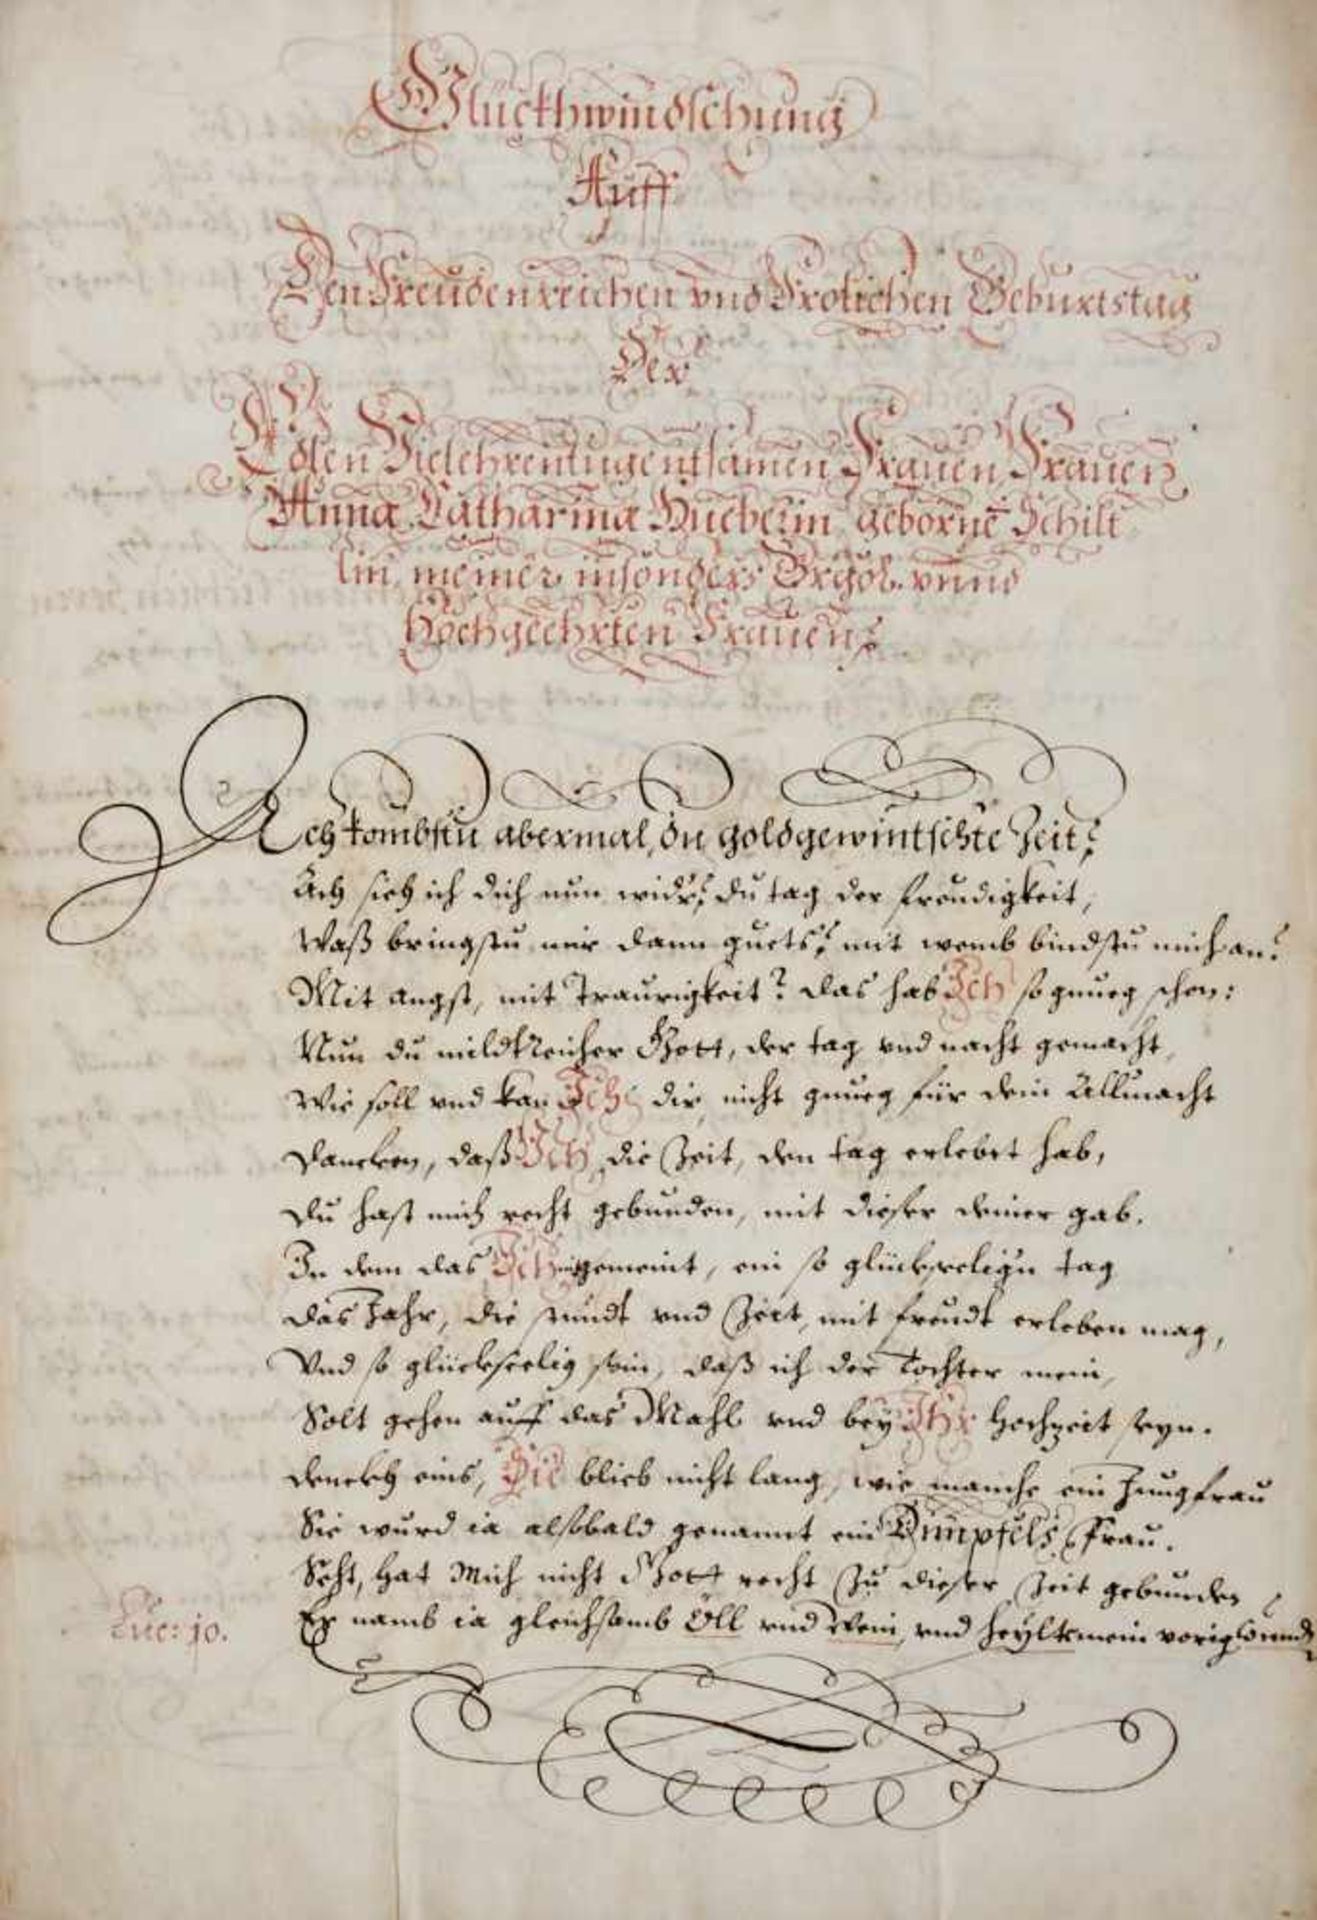 Glückhwindschung
Auff
Den Freudenreichen vnd Frolichen Geburtstag
Der
Edlen Vielehrentugentsamen Frauen, Frauen
Anna Catharina Hueberin geborne Schilt
lin, meiner insonders Grgöl. vnnd
Hochgeehrten Frauen,
Ach kombstu abermal, du goldgewüntschte Zeit?
Ach sieh ich dich nun wider? du tag der freudigkeit,
Waß bringstu mir dann guets? mit wemb bindstu mich an?
Mit angst, mit Traurigkeit? das hab Ich so gnueg schon:
Nun du mildtreicher Gott, der tag vnd nacht gemacht,
Wie soll vnd kan Ich dir nicht gnueg für dein Allmacht
Dancken, daß Ich die Zeit, den tag erlebet hab,
Du hast mich recht gebunden, mit dieser deiner gab.
In dem das Ich gemeint, ein so glückseligen tag
das Jahr, die stundt vnd Zeit, mit freudt erleben mag,
Vnd so glückseelig sein, daß ich der Tochter mein,
Solt gehen auff das Mahl vnd bey Ihr Hochzeit seyn.
denckh eins, Sie blieb nicht lang, wie manche ein Jungfrau
Sie wurd ia alsobald genannt ein Dümpfels Frau.
Seht, hat Mich nicht Gott recht zu dieser Zeit gebunden?
Luc: 10.
Er namb ia gleichsamb Öll vnd Wein, vnd heylt mein vorig wund